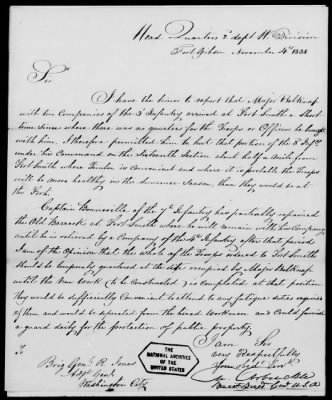 Head Quarters 2d dept W. Division
Fort Gibson November 4th 1838
Sir
I have the honor to report that Major Belknap
with two Companies of the 3d Infantry arrived at Fort Smith a short
time since where there was no quarters for the Troops or Officers
with him. I therefore permitted him to hut that portion of the 3d Infy
under his Command on the Sixteenth Section about half a mile from
Fort Smith where timber is convenient and where it is probable the Troops
will be more healthy in the summer season, than they would be at
the Fort.
Captain Bonneville of the 7th Infantry has partially repaired
the Old Barracks at Fort Smith where he will remain with his Company
until he is relieved by a Company of the 4th Infantry after that period
I am of the Opinion that the whole of the Troops ordered to Fort Smith
should be temporarily quartered at the site occupied by Major Belknap
until the New Work (to be Constructed) is completed at that position
they would be sufficiently convenient to attend to any fatigue duties required
of them and would be separated from the hired Workmen and could furnish
a guard daily for the protection of public property.
I am Sir
very Respectfully
your Obedt Servt
M Arbuckle
Brevt Brigd Genl U.S.A
To
Brig Genl R. Jones
Adjt Genl
Washington City
THE
NATIONAL ARCHIVES
OF THE
UNITED STATES